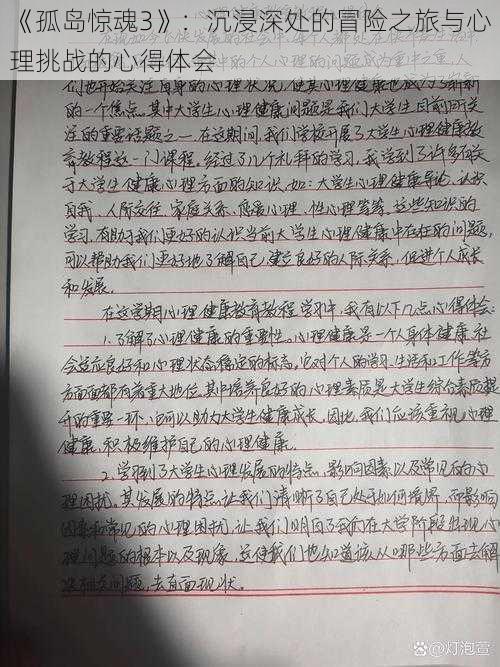 《孤岛惊魂3》：沉浸深处的冒险之旅与心
理挑战的心得体会
们也开始关注自身的心理状况，使其心理健康也成为了家所
的一个焦点。其中大学生心理健康问题是我们大学生目前所关
注的重要话题之一，在这期间，我们学校开展了大学生心理健康教
育教程这一门课程，经过了几个礼拜的学习，我学到了许多有关
于大学生健康心理方面的知识，如：大学生心理健康导论、认识
自我、人际交往、家庭关系、恋爱心理、性心理等等。这些知识的
学习，有助于我们更好的认识当前大学生心理健康中存在的问题，
可以帮助我们更好地了解自己，建立良好的人际关系，促进个人成长
和发展。
在这学期心理健康教育教程学习中，我有以下几点心得体会：
1.了解了心理健康的重要性。心理健康是一个人身体健康，社
会适应良好和心理状态稳定的标志。它对个人的学习、生活和工作等方
方面面都有着重大地位，其中培养良好的心理素质是大学生综合素质提
升的重要一环，也可以助力大学生健康成长。因此，我们应该重视心理
健康，积极维护自己的心理健康。
2.学习到了大学生心理发展的特点、影响因素以及常见的心
理困扰。其发展的特点，让我们清晰了自己处于如何境界，而影响
因素和常见的心理困扰，让我们明白了我们在大学阶段出现心
理问题的根本以及现象，这使我们也知道该从哪些方面去解
决相关问题，去直面现状。
百家号/灯泡萱